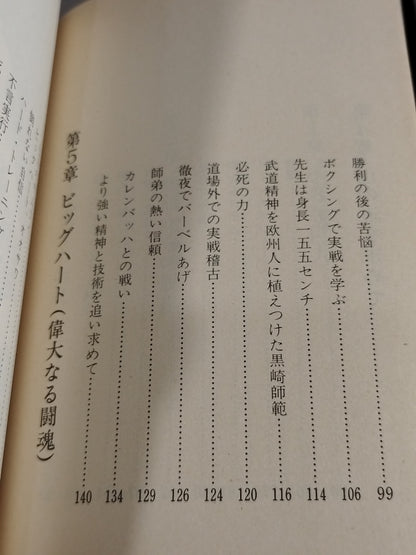 勝利の後の苦悩 99
ボクシングで実戦を学ぶ 106
先生は身長一五五センチ 114
武道精神を欧州人に植えつけた黒崎師範 116
必死の力 120
道場外での実戦稽古 124
徹夜でバーベルあげ 126
師弟の熱い信頼 129
カレンバッハとの戦い 134
より強い精神と技術を追い求めて 140
第5章 ビッグハート(偉大なる闘魂)